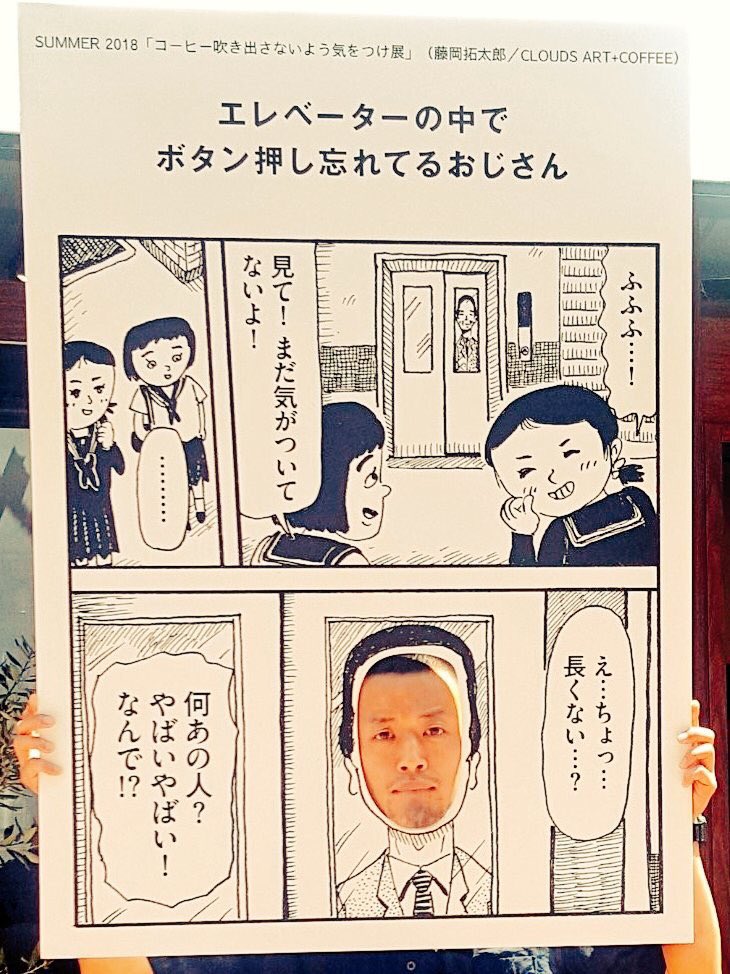 SUMMER 2018「コーヒー吹き出さないよう気をつけ展」（藤岡拓太郎／CLOUDS ART+COFFEE）
エレベーターの中で
ボタン押し忘れてるおじさん
ふふふ…！
見て！まだ気がついて
ないよ！
………
え…ちょっ…
長くない…？
何あの人？
やばいやばい！
なんで!?